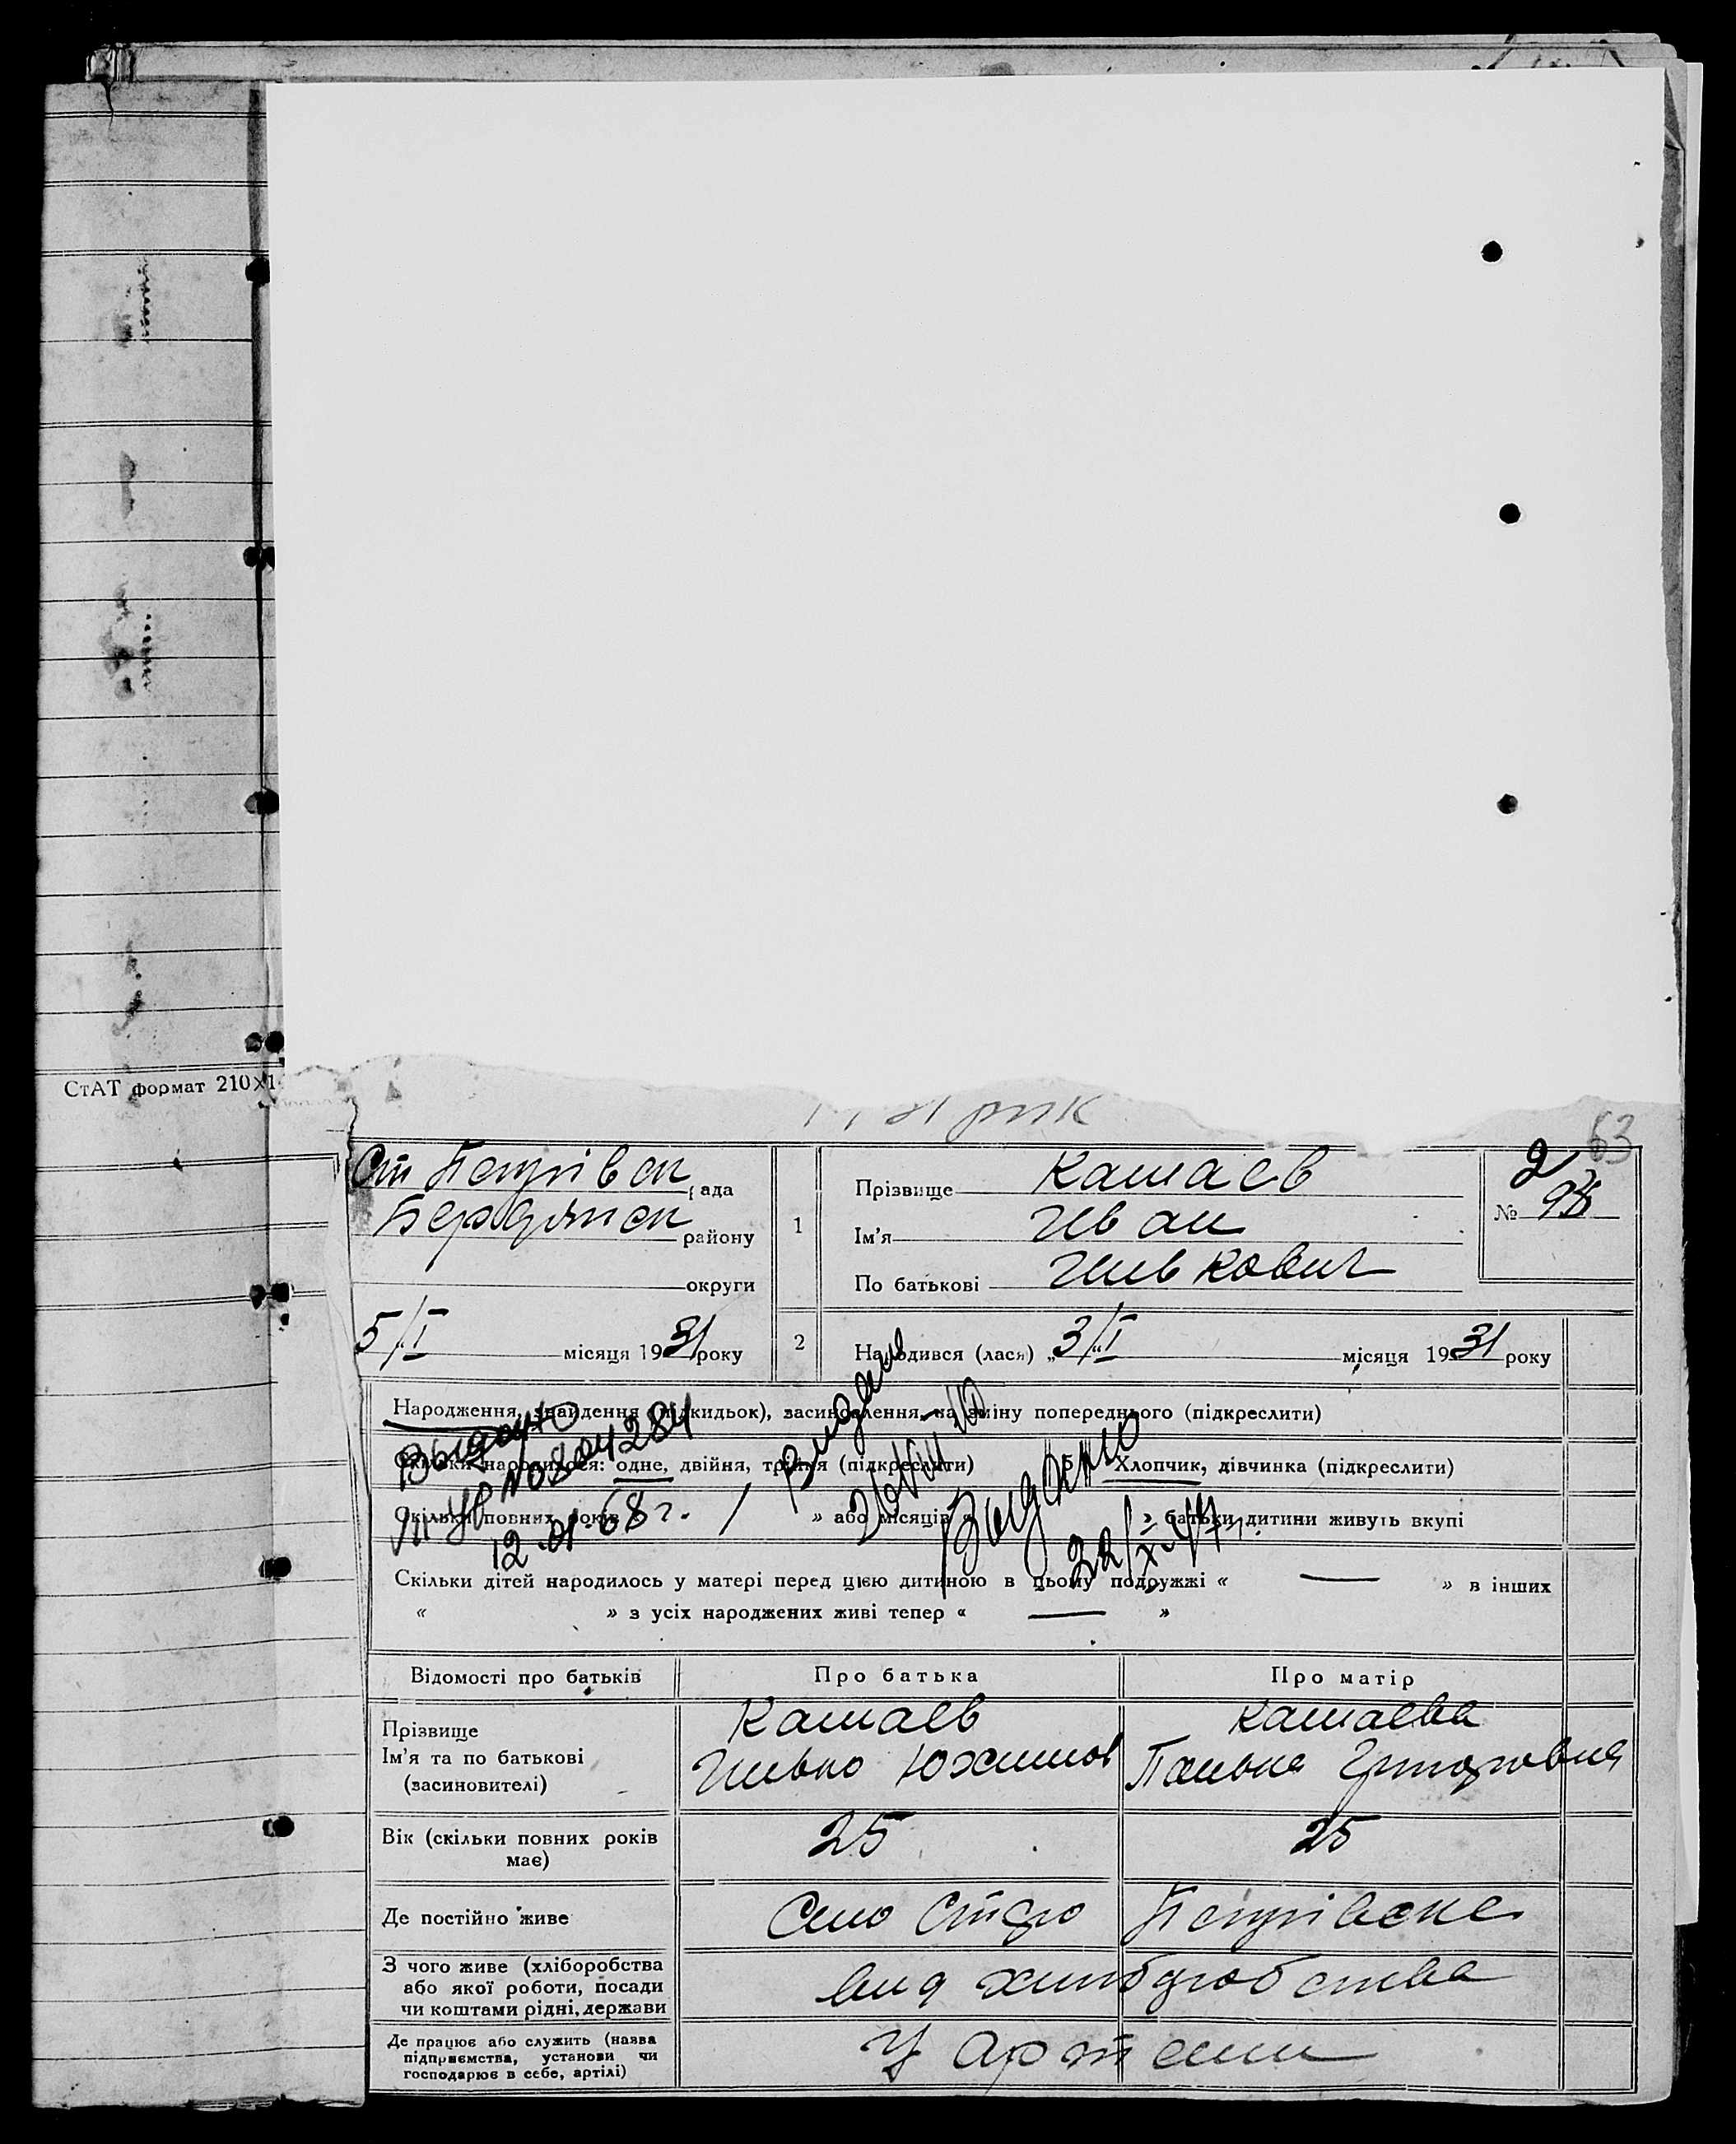 СтАТ формат 210×1
31 рик
63
Ст Петрівск рада
Бердянск району
округи
5/I місяця 1931 року
1
Прізвище Кашаев
Ім'я Иван
По батькові Живкович
2
№ 98
2
Народився (лася) „3/I місяця 1931 року
Народження, знайдення (підкидьок), засиновлення, на зміну попереднього (підкреслити)
Скільки народилося: одне, двійня, трійня (підкреслити)
5 Хлопчик, дівчинка (підкреслити)
Скільки повних років
» або місяців «
» батьки дитини живуть вкупі
Выдано
№ 804284
12.01.68 г.
Видано
Выдано
Скільки дітей народилось у матері перед цією дитиною в цьому подружжі « — » в інших
« » з усіх народжених живі тепер « — »
Відомості про батьків
Про батька
Про матір
Прізвище
Ім'я та по батькові
(засиновителі)
Кашаев
Живко Юхимов
Кашаева
Григоровна
Вік (скільки повних років
має)
25
25
Де постійно живе
Село Старо Петрівске
З чого живе (хліборобства
або якої роботи, посади
чи коштами рідні, держави
вид хлиборобства
Де працює або служить (назва
підприємства, установи чи
господарює в себе, артілі)
У артели